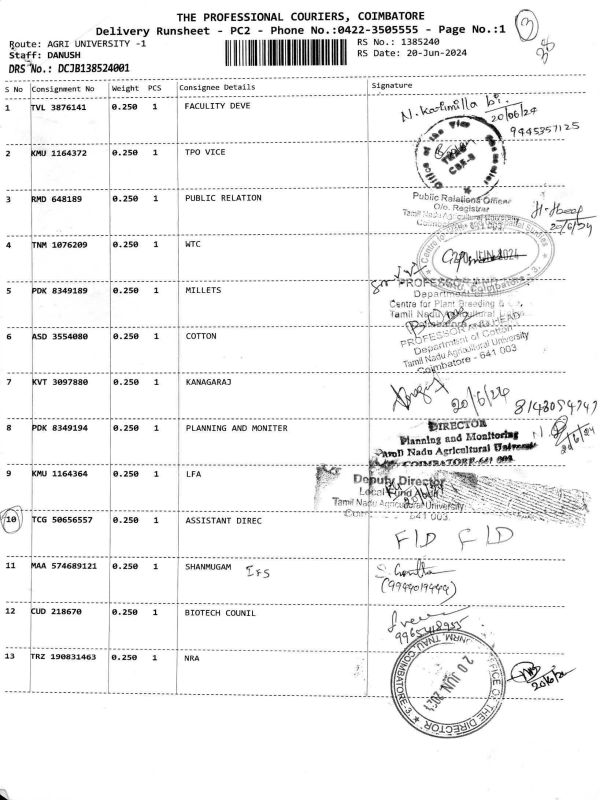 THE PROFESSIONAL COURIERS, COIMBATORE
Delivery Runsheet - PC2 - Phone No.:0422-3505555 - Page No.:1
3
Route: AGRI UNIVERSITY -1
RS No.: 1385240
Staff: DANUSH
RS Date: 20-Jun-2024
DRS No.: DCJB138524001
S No Consignment No Weight PCS Consignee Details Signature
1 TVL 3876141 0.250 1 FACULITY DEVE
20/06/24
9445357125
2 KMU 1164372 0.250 1 TPO VICE
Office of the Vice Chancellor
3 RMD 648189 0.250 1 PUBLIC RELATION
Public Relations Officer
O/o. Registrar
Tamil Nadu Agricultural University
Coimbatore - 641 003
20/6/24
4 TNM 1076209 0.250 1 WTC
5 PDK 8349189 0.250 1 MILLETS
Centre for Plant Breeding &
Tamil Nadu Agricultural
6 ASD 3554080 0.250 1 COTTON
PROFESSOR AND HEAD
Department of Cotton
Tamil Nadu Agricultural University
Coimbatore - 641 003
7 KVT 3097880 0.250 1 KANAGARAJ
20/6/24
8 PDK 8349194 0.250 1 PLANNING AND MONITER
DIRECTOR
Planning and Monitoring
Tamil Nadu Agricultural University
COIMBATORE-641 003.
9 KMU 1164364 0.250 1 LFA
Deputy Director
Local Fund Audit
Tamil Nadu Agricultural University
641 003
10 TCG 50656557 0.250 1 ASSISTANT DIREC
F/D F/D
11 MAA 574689121 0.250 1 SHANMUGAM IFS
(9944019444)
12 CUD 218670 0.250 1 BIOTECH COUNIL
13 TRZ 190831463 0.250 1 NRA
OFFICE OF THE DIRECTOR
NRM, TNAU, COIMBATORE-3
20 JUN 2024